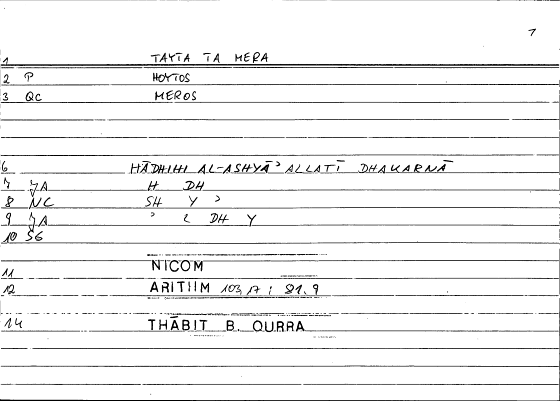 7
1 TAYTA TA MERA
2 P HOYTOS
3 QC MEROS
6 HĀDHIHI AL-ASHYĀʾ ALLATĪ DHAKARNĀ
7 JA H DH
8 NC SH Y ʾ
9 JA ʾ L DH Y
10 SG
11 NICOM
12 ARITIIM 103,17; 81.9
14 THĀBIT B. QURRA